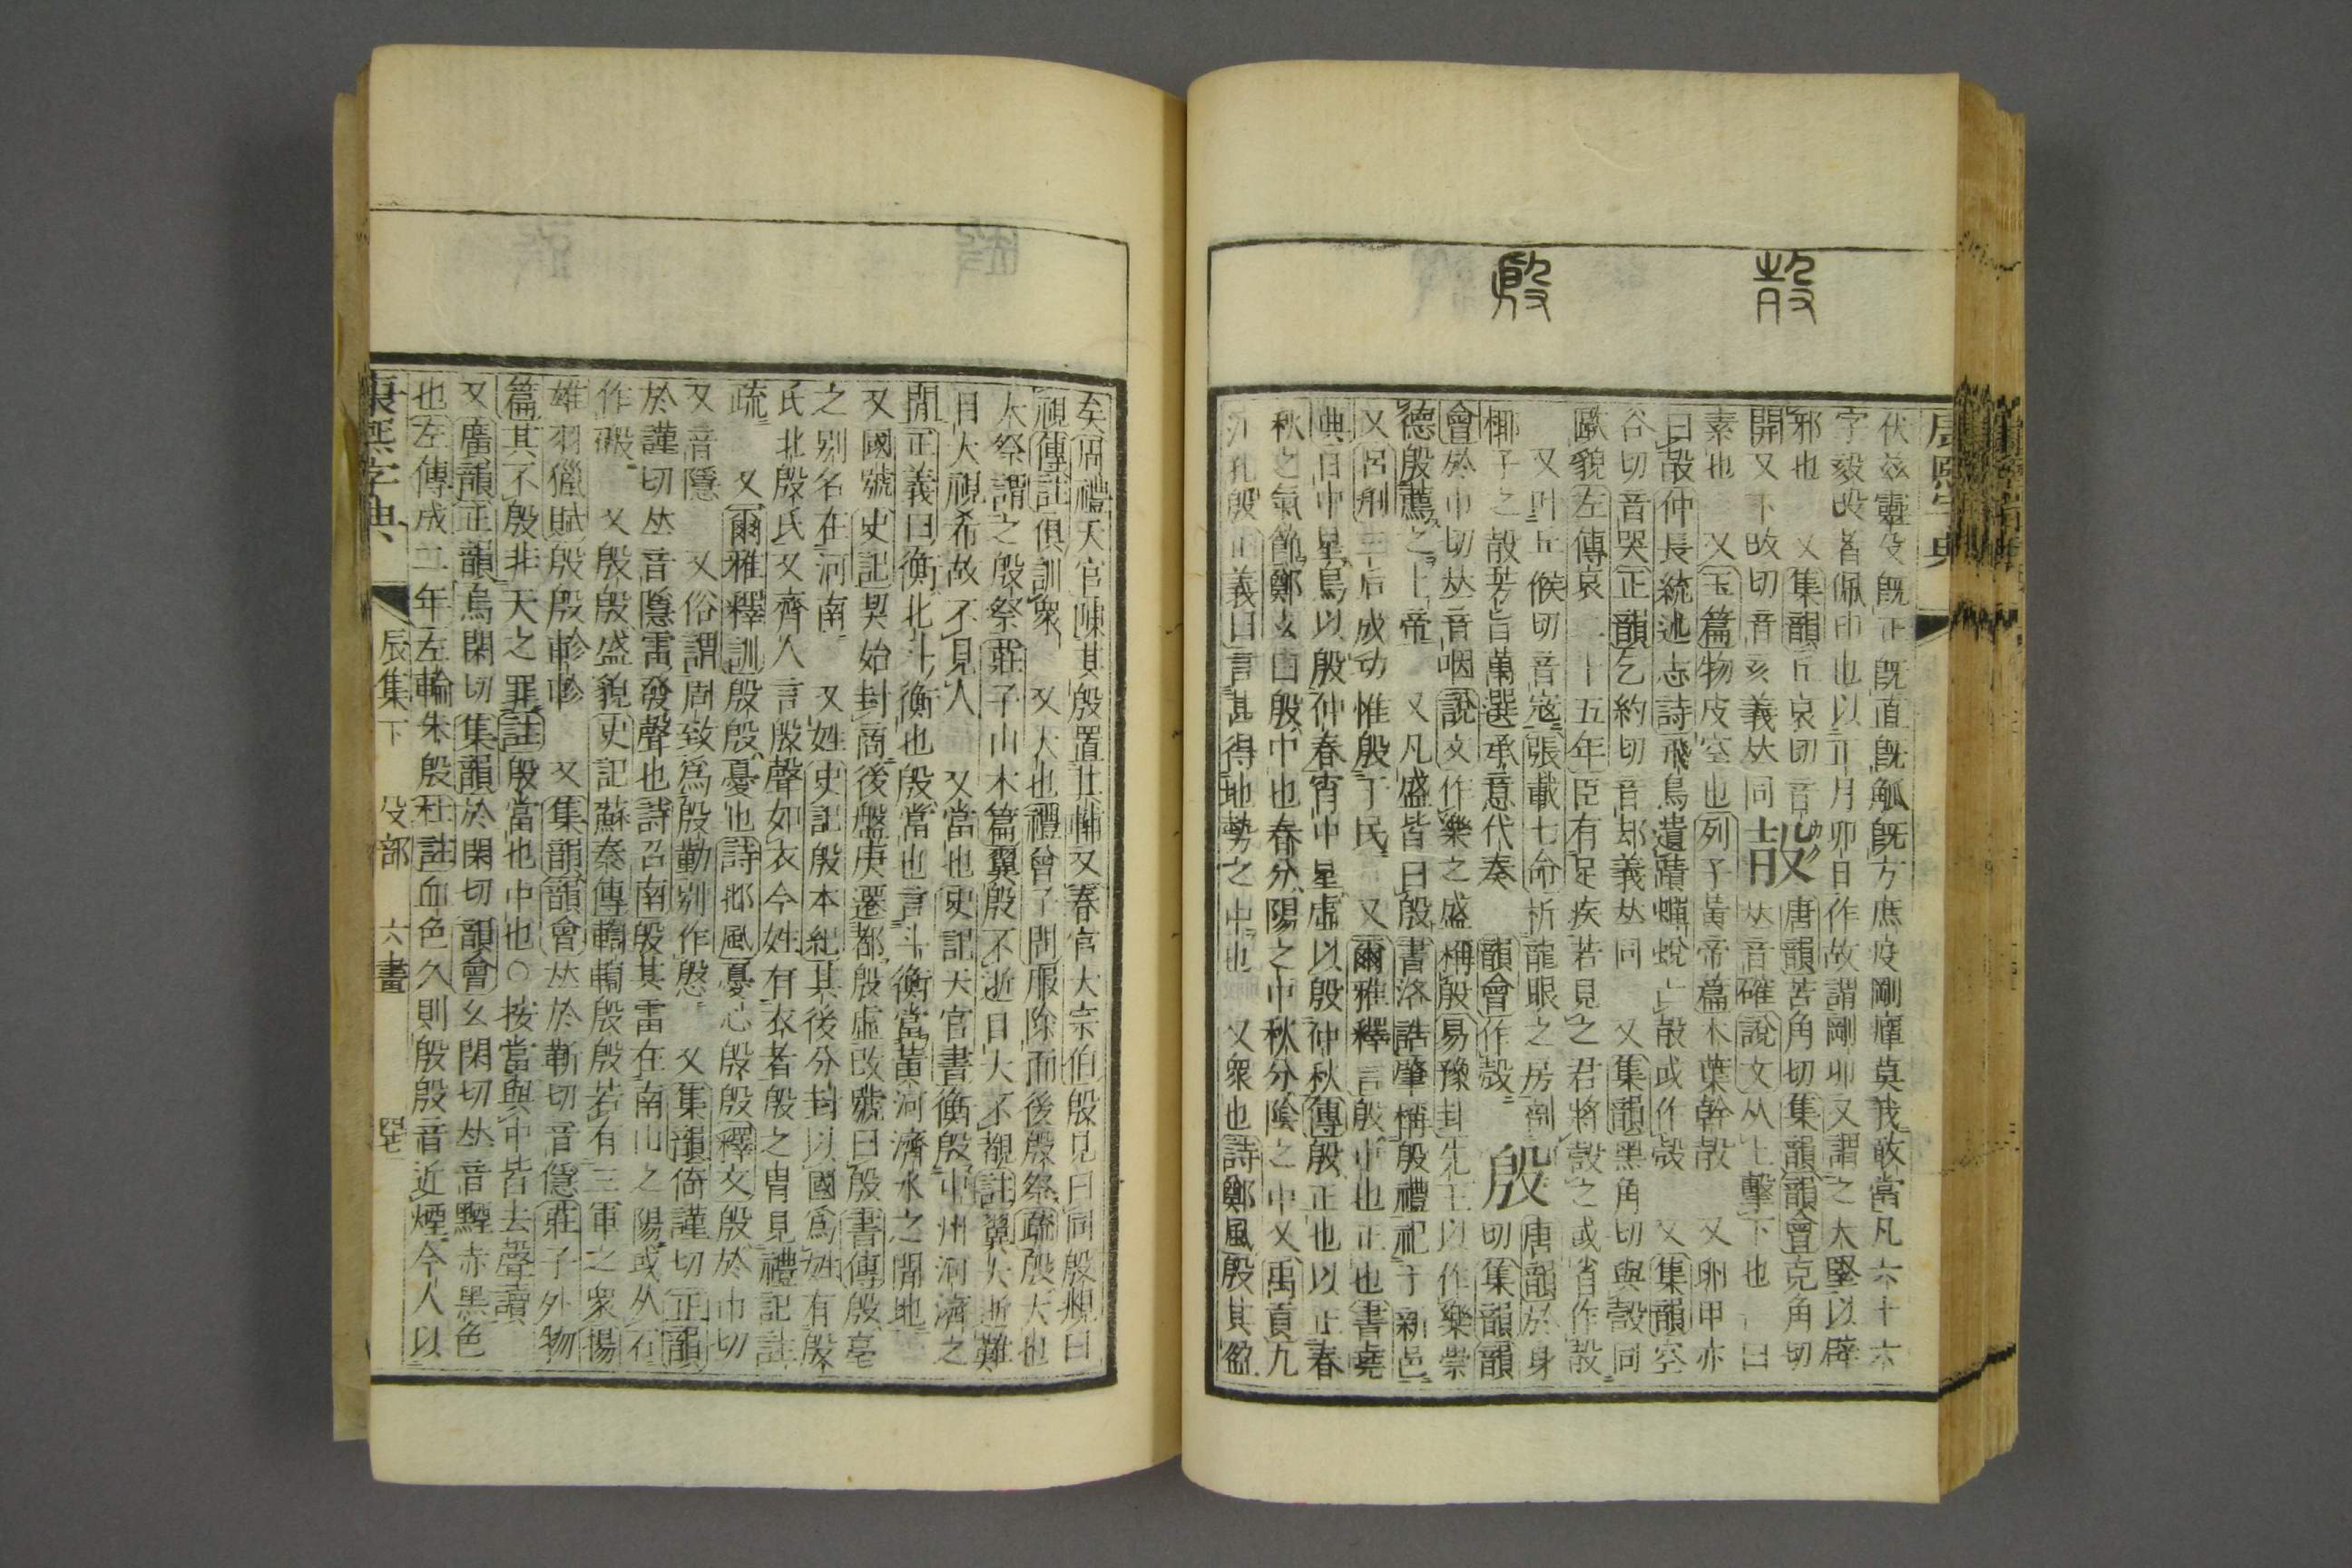 㱿
殷
康熙字典
伏茲靈殳旣正旣直旣觚旣方庶疫剛癉莫我敢當凡六十六
字毅改者佩印也以正月卯日作故謂剛卯又謂之大堅以辟
邪也 又集韻丘哀切音
開又下改切音亥義𠀤同
㱿
唐韻苦角切集韻韻會克角切
𠀤音確說文从上擊下也一曰
素也 又玉篇物皮空也列子黃帝篇木葉幹㱿 又卵甲亦
曰㱿仲長統述志詩飛鳥遺蹟蟬蛻亡㱿或作殼 又集韻空
谷切音哭正韻乞約切音却義𠀤同 又集韻黑角切與嗀同
歐貌左傳哀二十五年臣有足疾若見之君將嗀之或省作㱿
又叶丘候切音寇張載七命析龍眼之房剖
椰子之㱿芳旨萬選承意代奏 韻會作殼
殷
唐韻於身
切集韻韻
會於巾切𠀤音咽說文作樂之盛稱殷易豫卦先王以作樂崇
德殷薦之上帝 又凡盛皆曰殷書洛誥肇稱殷禮祀于新邑
又呂𠛬三后成功惟殷于民 又爾雅釋言殷中也正也書堯
典日中星鳥以殷仲春宵中星虛以殷仲秋傳殷正也以正春
秋之氣節鄭玄曰殷中也春分陽之中秋分陰之中又禹貢九
江孔殷正義曰言甚得地勢之中也 又衆也詩鄭風殷其盈
矣周禮天官陳其殷置其輔又春官大宗伯殷見曰同殷覜曰
視傳註俱訓衆 又大也禮曾子問服除而後殷祭疏殷大也
大祭謂之殷祭莊子山木篇翼殷不逝目大不覩註翼大逝難
目大視希故不見人 又當也史記天官書衡殷中州河濟之
閒正義曰衡北斗衡也殷當也言斗衡當黃河濟水之閒地
又國號史記契始封商後盤庚遷都殷虛改號曰殷書傳殷亳
之別名在河南 又姓史記殷本紀其後分封以國爲姓有殷
氏北殷氏又齊人言殷聲如衣今姓有衣者殷之胄見禮記註
疏 又爾雅釋訓殷殷憂也詩邶風憂心殷殷釋文殷於巾切
又音隱 又俗謂周致爲殷勤別作慇 又集韻倚謹切正韻
於謹切𠀤音隱雷發聲也詩召南殷其雷在南山之陽或从石
作磤 又殷殷盛貌史記蘇秦傳輷輷殷殷若有三軍之衆揚
雄羽獵賦殷殷軫軫 又集韻韻會𠀤於靳切音㥯莊子外物
篇其不殷非天之罪註殷當也中也○按當與中皆去聲讀
又廣韻正韻烏閑切集韻於閑切韻會幺閑切𠀤音黫赤黑色
也左傳成二年左輪朱殷杜註血色久則殷殷音近煙今人以
康熙字典 辰集下 殳部 六畫